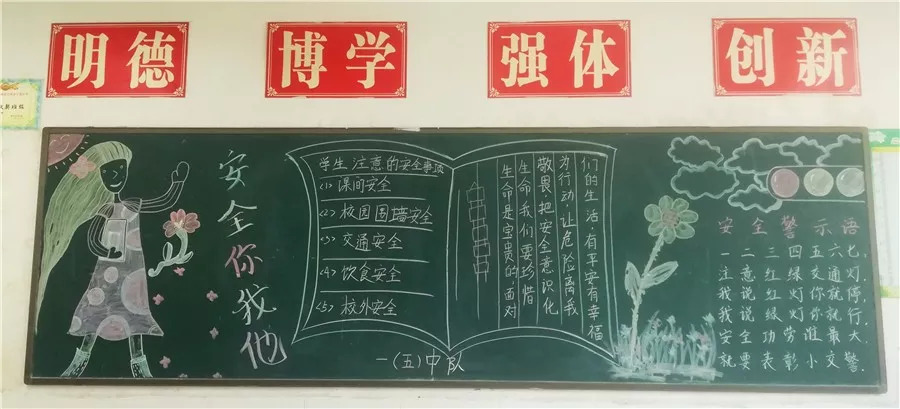 明德
博学
强体
创新
安全你我他
学生注意的安全事项
(1)课间安全
(2)校园围墙安全
(3)交通安全
(4)饮食安全
(5)校外安全
生命是宝贵的,面对
生命我们要珍惜
敬畏把安全意识化
为行动,让危险离我
们的生活,有平安有幸福
安全警示语
一二三四五六七
注意红绿交通灯,
我说红灯你就停,
我说绿灯你就行,
安全功劳谁最大,
就要表彰小交警.
一(五)中队